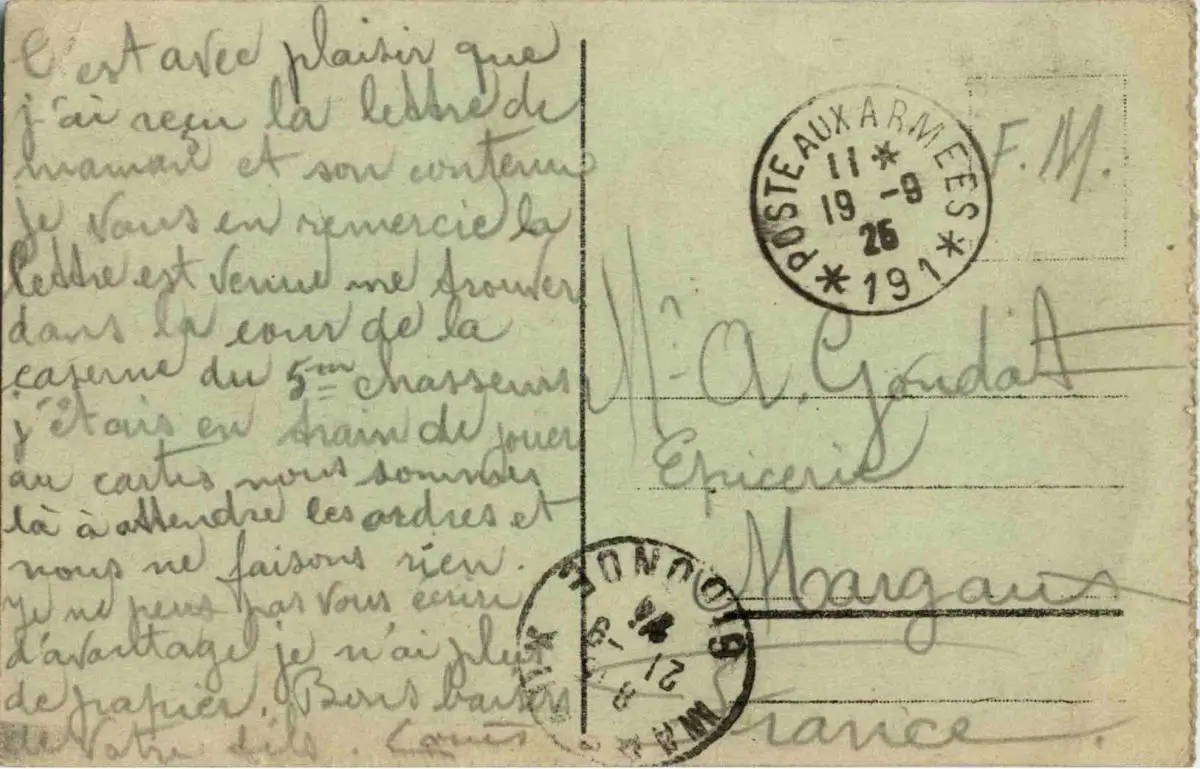 C'est avec plaisir que
j'ai reçu la lettre de
maman et son contenu
je vous en remercie la
lettre est venue me trouver
dans la cour de la
caserne du 5me chasseurs
j'étais en train de jouer
au cartes nous sommes
là à attendre les ordres et
nous ne faisons rien.
Je ne peus pas vous écrire
d'avantage je n'ai plus
de papier. Bons baisers
de votre fils. Louis
POSTE AUX ARMEES
11 *
19 -9
26
* 191 *
F.M.
Mr A. Goudat
Epicerie
Margaux
France
MARGAUX
GIRONDE
8
21 -9
26